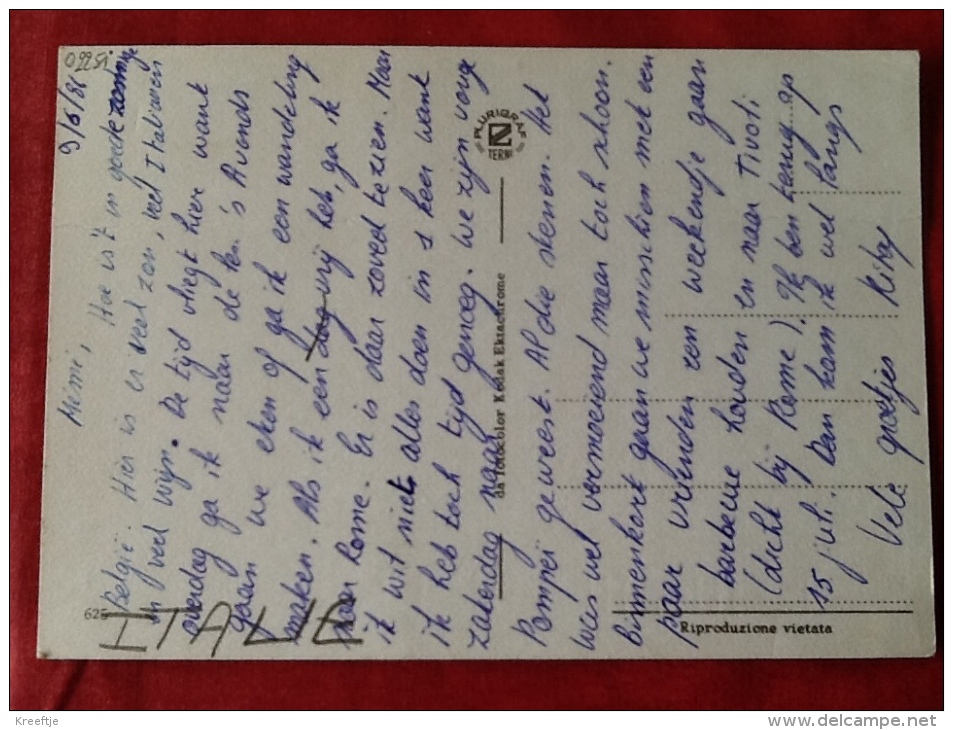 02251
9/6/86
Mémé, Hoe is 't in goede zonnige
België? Hier is er veel zon, veel Italianen
en veel wijn. De tijd vliegt hier want
overdag ga ik naar de les. 's Avonds
gaan we eten of ga ik een wandeling
maken. Als ik een dag vrij heb, ga ik
naar Rome. Er is daar zoveel te zien. Maar
ik wil niet alles doen in 1 keer want
ik heb toch tijd genoeg. We zijn vorige
zaterdag naar
Pompeï geweest. Al die stenen. Het
was wel vermoeiend maar toch schoon.
Binnenkort gaan we misschien met een
paar vrienden een weekendje gaan
barbecue houden en naar Tivoli
(dicht bij Rome). Ik ben terug op
15 juli. Dan kom ik wel langs
Vele groetjes
ITALIE
625
PLURIGRAF
TERNI
da fotocolor Kodak Ektachrome
Riproduzione vietata
Kreeftje
www.delcampe.net